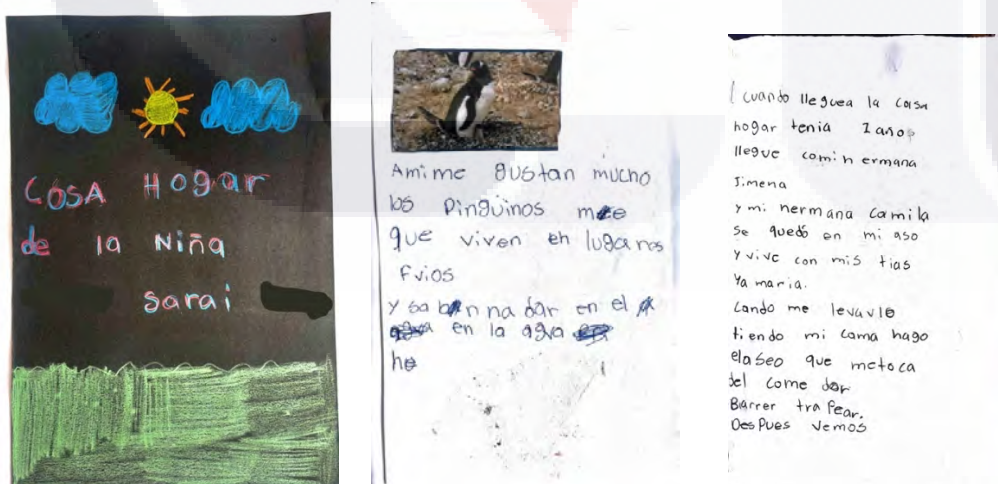 COSA Hogar
de la Niña
sarai
Amime gustan mucho
los Pinguinos
que viven en lugaros
fvios
y saben na dar en el
en la agva
he
cuando lleguea la casa
hogar tenia 1 años
llegue comi hermana
Jimena
y mi hermana camila
se quedó en mi aso
y vive con mis tias
Ya maria.
Cando me levavle
tiendo mi cama hago
elaseo que metoca
del come dor
Barrer tra Pear.
Des Pues vemos